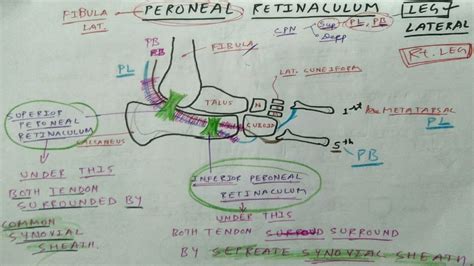 FIBULA
LAT.
PERONEAL RETINACULUM
LEG
LATERAL
Rt. LEG
CPN
Sup
Deep
PL, PB
PB
PB
PL
FIBULA
LAT. CUNEIFORM
TALUS
N
CUBOID
CALCANEUS
1st METATARSAL
PL
5th
PB
SUPERIOR
PERONEAL
RETINACULUM
UNDER THIS
BOTH TENDON
SURROUNDED BY
COMMON
SYNOVIAL
SHEATH.
INFERIOR PERONEAL
RETINACULUM
UNDER THIS
BOTH TENDON SURROUND
BY SEPREATE SYNOVIAL SHEATH